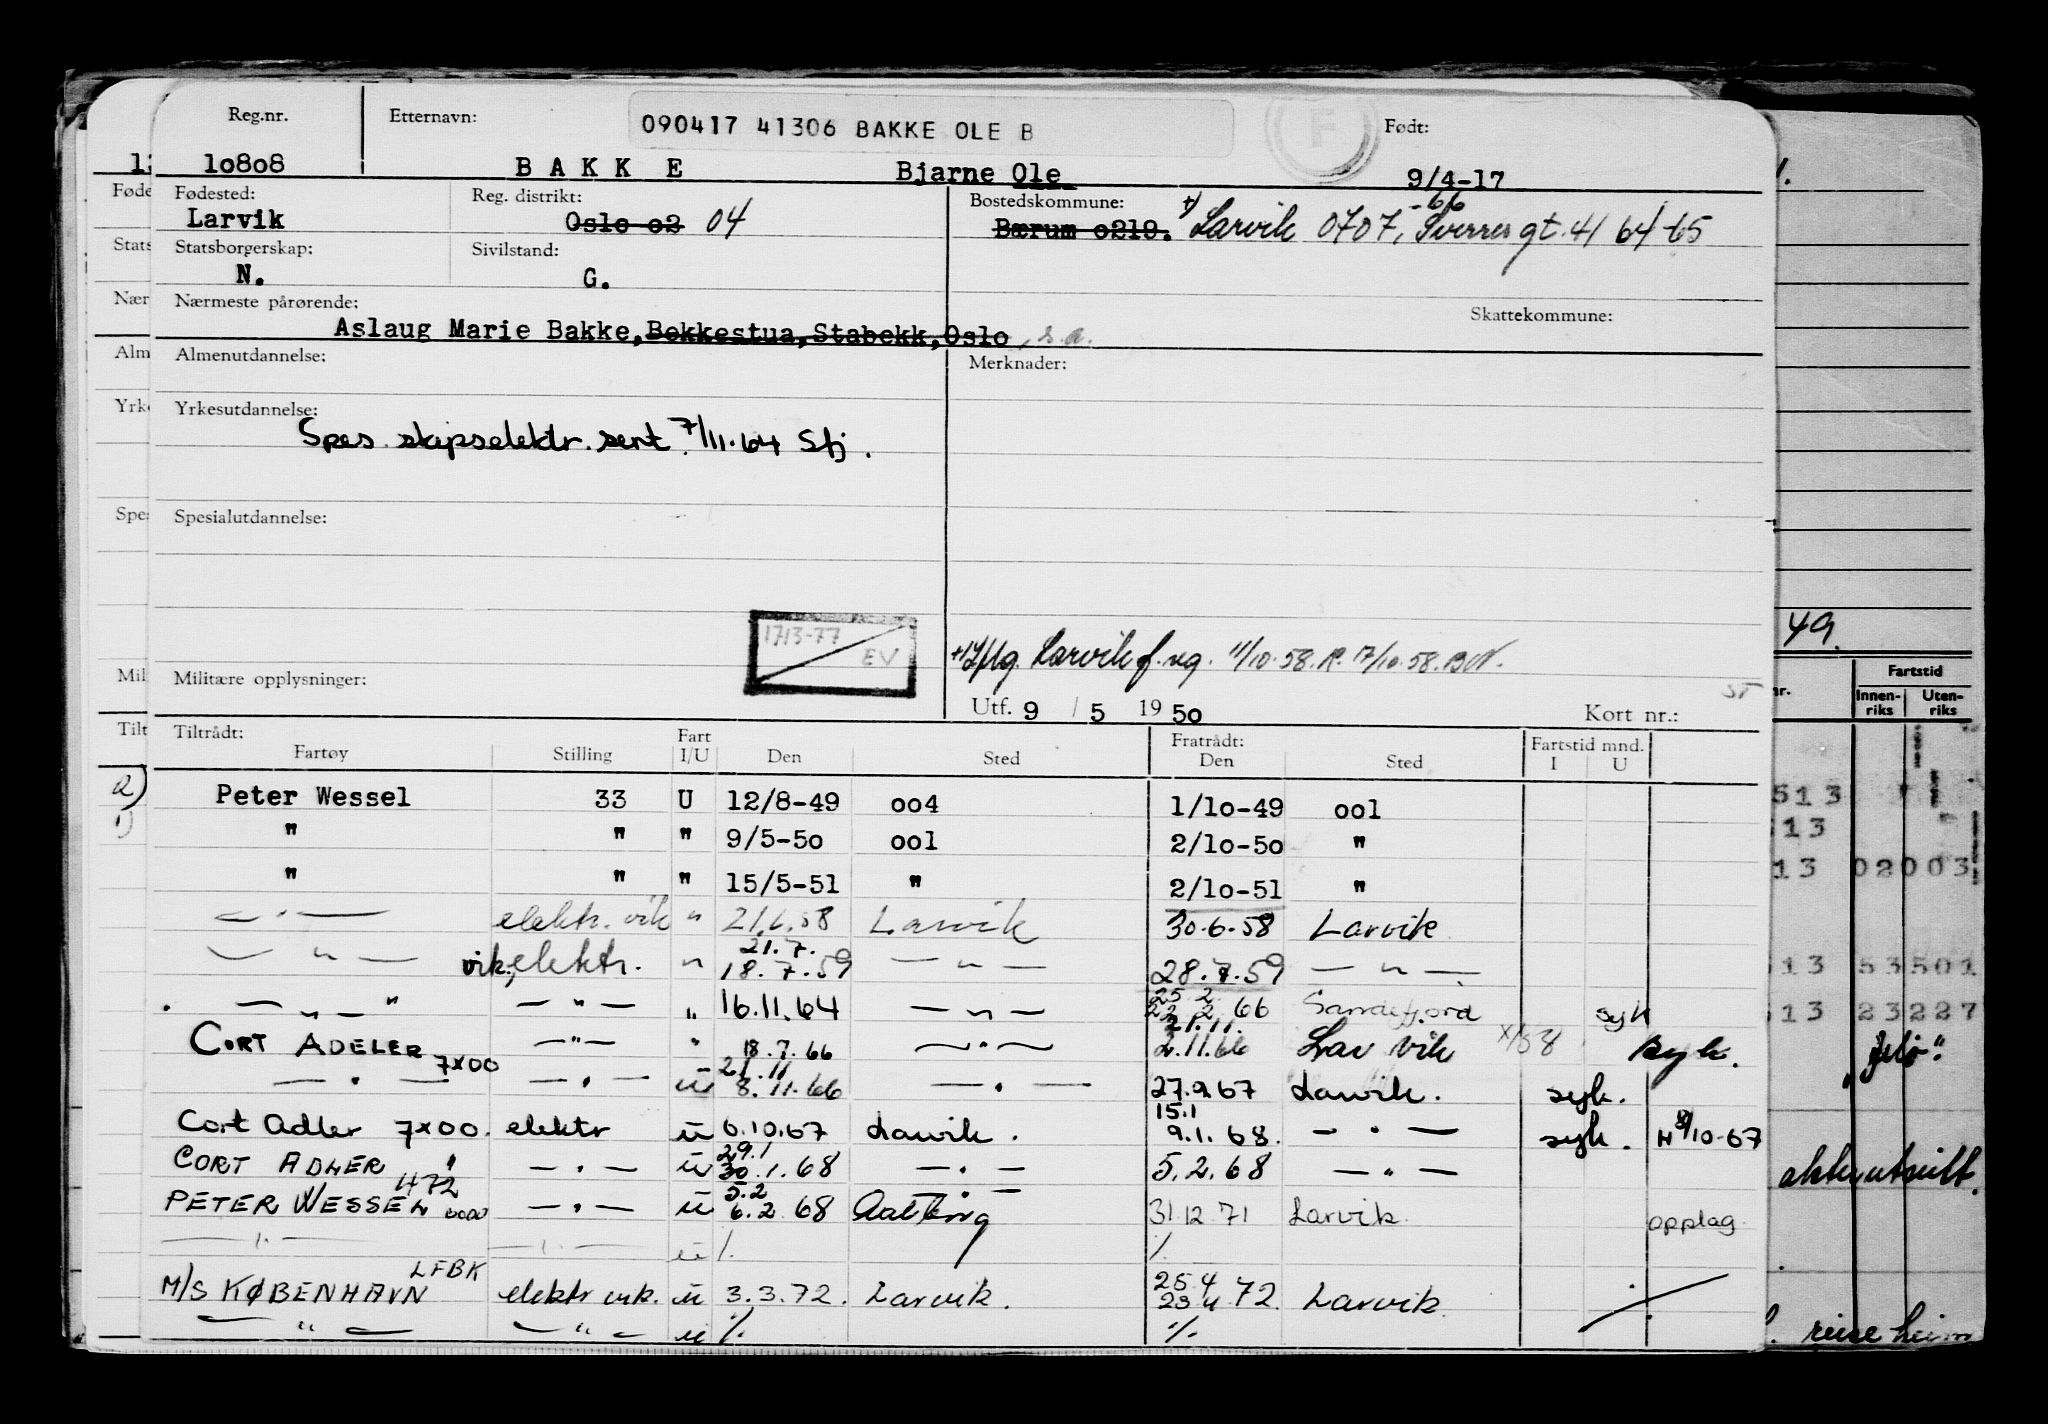 Reg.nr. Etternavn: 090417 41306 BAKKE OLE B F Født:
10808 BAKKE Bjarne Ole 9/4-17
Fødested: Reg. distrikt: Bostedskommune: -66
Larvik Oslo o2 04 Bærum o219. +) Larvik 0707, Sverres gt. 41 64-65
Statsborgerskap: Sivilstand:
N. G.
Nærmeste pårørende: Skattekommune:
Aslaug Marie Bakke, Bekkestua, Stabekk, Oslo, s.a.
Almenutdannelse: Merknader:
Yrkesutdannelse:
Spes. skipselektr. sert. 7/11.64 Sfj.
Spesialutdannelse:
1713-77
EV
Larvik 11/10.58. 17/10.58.
Militære opplysninger:
Utf. 9 / 5 1950 Kort nr.:
Tiltrådt: Fart Fratrådt: Fartstid mnd.
Fartøy Stilling I/U Den Sted Den Sted I U
Peter Wessel 33 U 12/8-49 oo4 1/10-49 oo1
" " " 9/5-50 oo1 2/10-50 "
" " " 15/5-51 " 2/10-51 "
— " — elektr. vik " 21.6.58 Larvik 30.6.58 Larvik
21.7.
— " — vik. elektr. " 18.7.59 — " — 28.7.59 — " —
25.2
— " — " — " — " 16.11.64 — " — 66 Sandefjord syk
21.11.
CORT ADELER — " — " 18.7.66 — " — 2.11.66 Larvik syk.
7x00 21.11
— " — — " — u 8.11.66 — " — 27.9.67 Larvik. syk.
15.1
Cort Adler 7x00. elektr u 6.10.67 Larvik. 9.1.68. — " — syk. H 8/10-67
29.1
CORT ADLER " — " — u 30.1.68 — " — 5.2.68 — " —
472 5.2
PETER WESSEL — " — u 6.2 68 Aalborg 31 12 71 Larvik opplag
— " — — " — u % %
LFBK 25.4
M/S KØBENHAVN elektr vik. u 3.3.72. Larvik. 23.4.72. Larvik
— " — — " — u % %
49.
Fartstid
Innen-riks Uten-riks
513
13
13 02003
13 53501
13 23227
reise heim